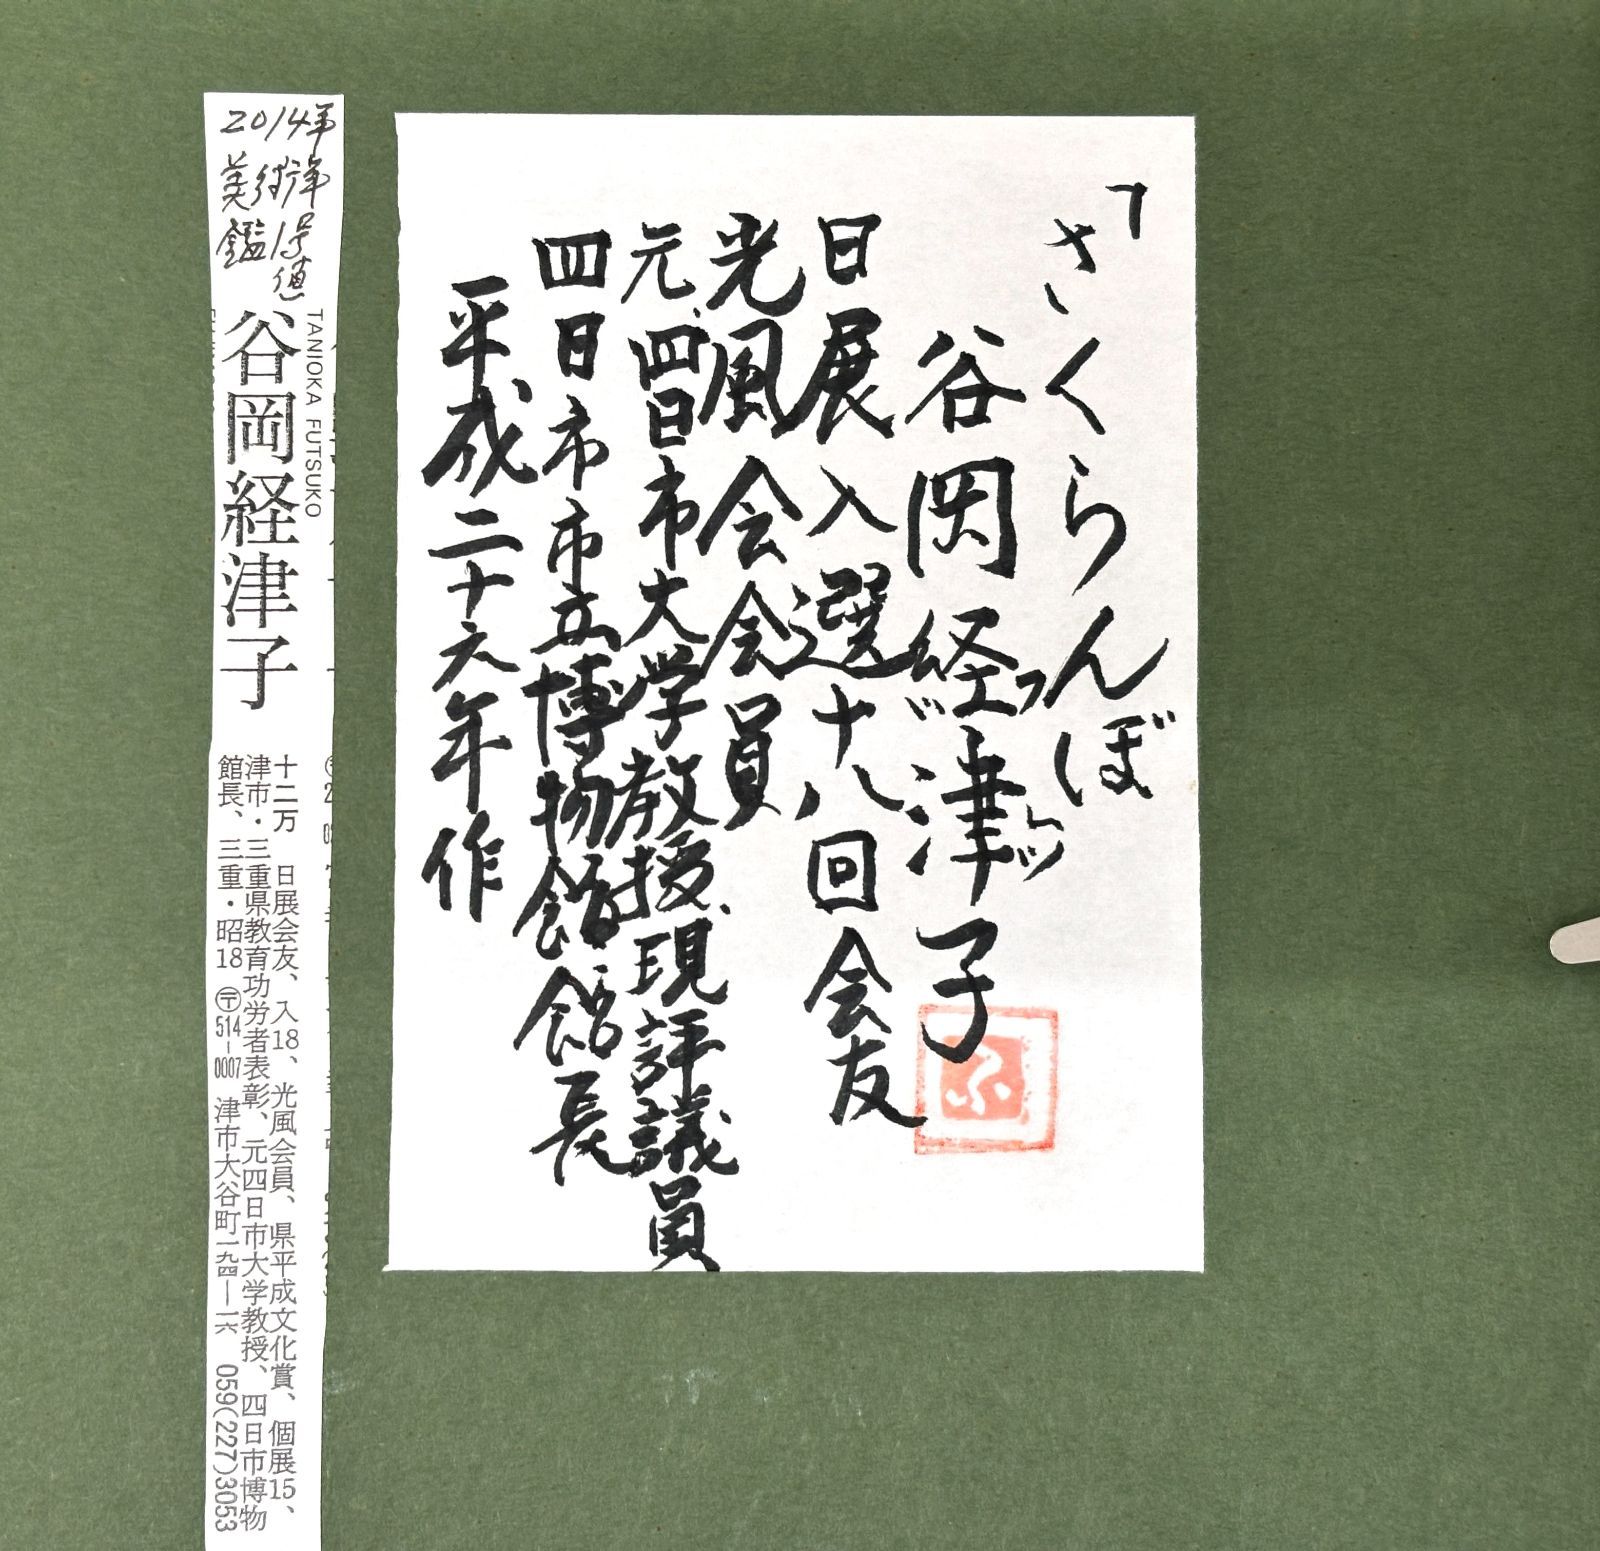 「さくらんぼ
谷岡経津子
フッ
日展入選十八回会友
光風会会員
元、四日市大学教授、現評議員
四日市市立博物館館長
平成二十六年作
2014年
美術年
鑑 1号値
TANIOKA FUTSUKO
谷岡経津子
十二万 日展会友、入18、光風会員、県平成文化賞、個展15、
津市・三重県教育功労者表彰、元四日市大学教授、四日市博物
館長、三重・昭18 〒514-0007 津市大谷町一九四—一六 059(227)3053